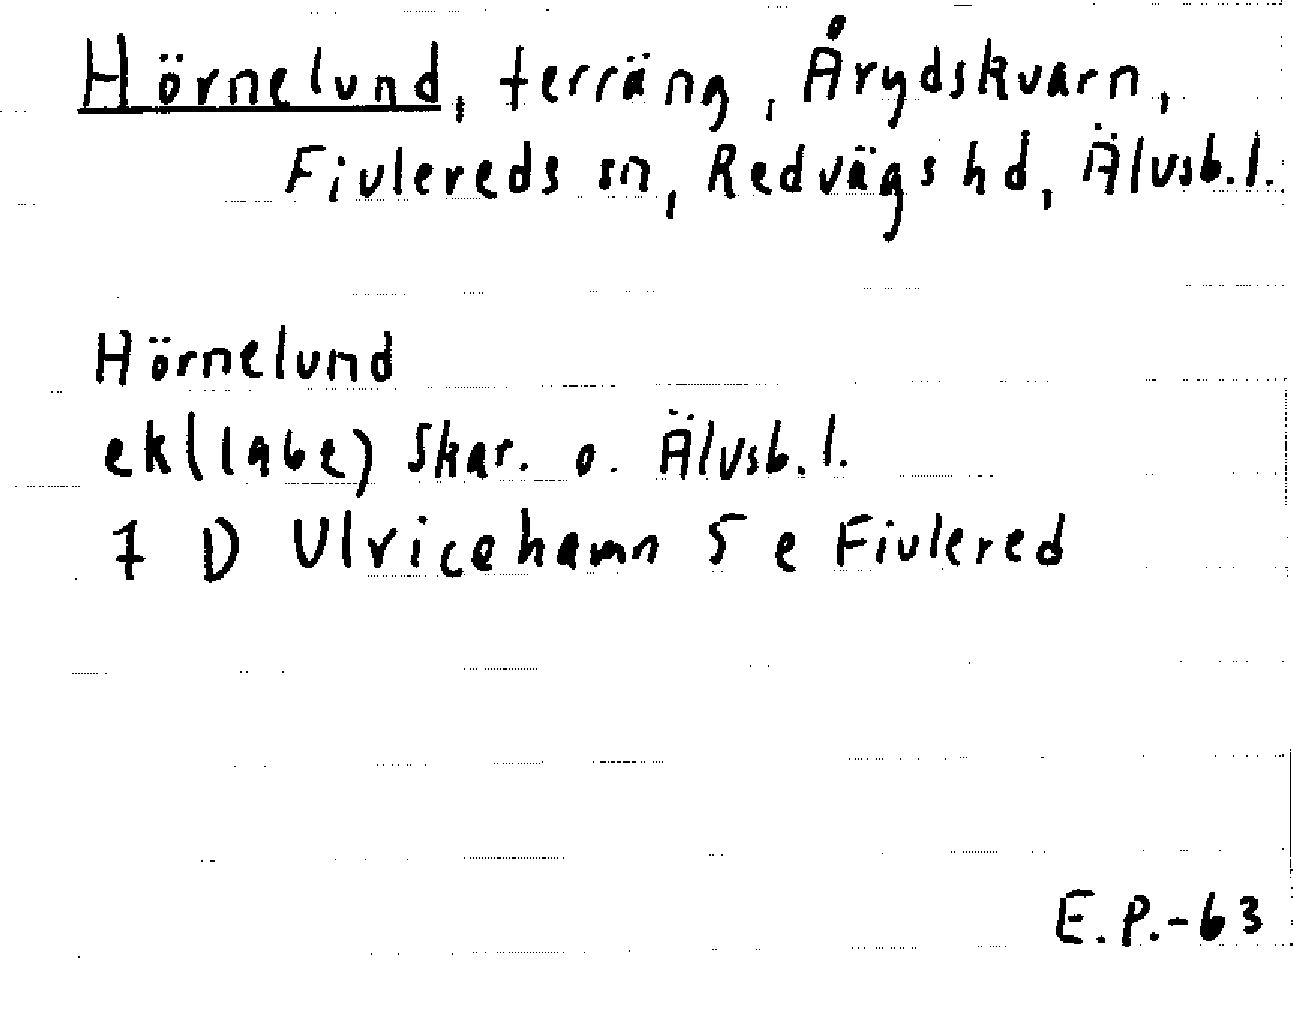 Hörnelund, terräng, Årydskvarn,
Fivlereds sn, Redvägs hd, Älvsb. l.
Hörnelund
ek(1961) Skar. o. Älvsb. l.
7 D Ulricehamn 5 e Fivlered
E. P. - 63